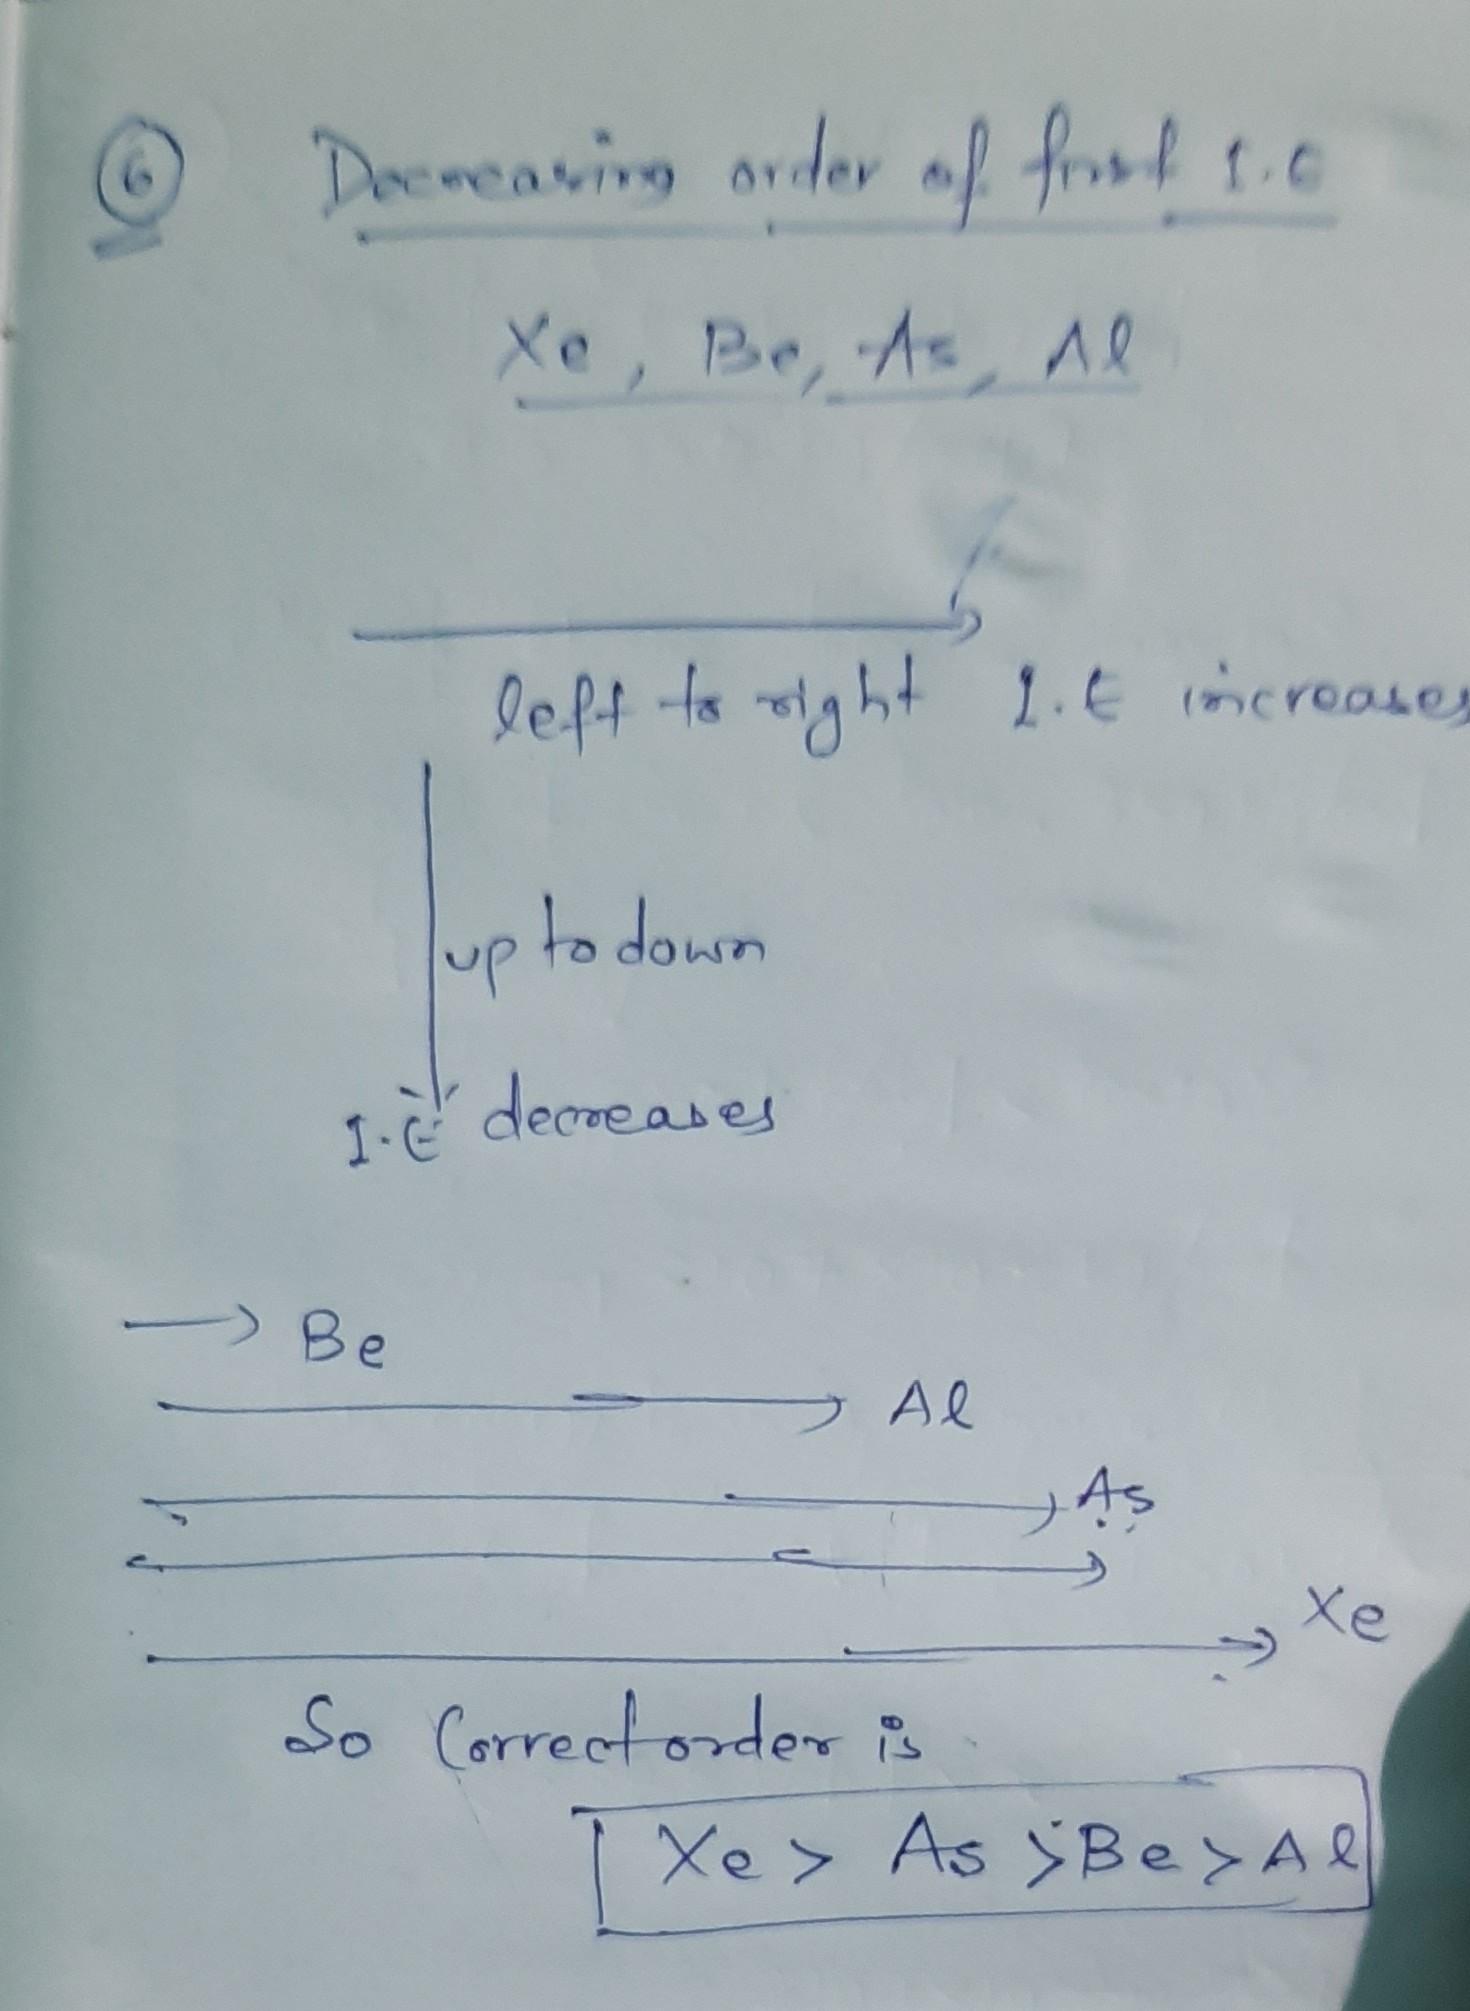 6 Decreasing order of first I.E
Xe, Be, As, Al
left to right I.E increases
up to down
I.E decreases
Be
Al
As
Xe
So Correct order is
Xe > As > Be > Al